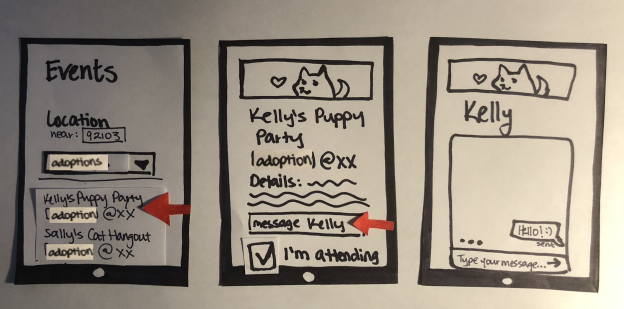 Events
Location
near: 92103
adoptions
Kelly's Puppy Party
[adoption] @XX
Sally's Cat Hangout
[adoption] @ XX
Kelly's Puppy
Party
[adoption] @XX
Details:
message Kelly
I'm attending
Kelly
Hello! :)
sent
Type your message...